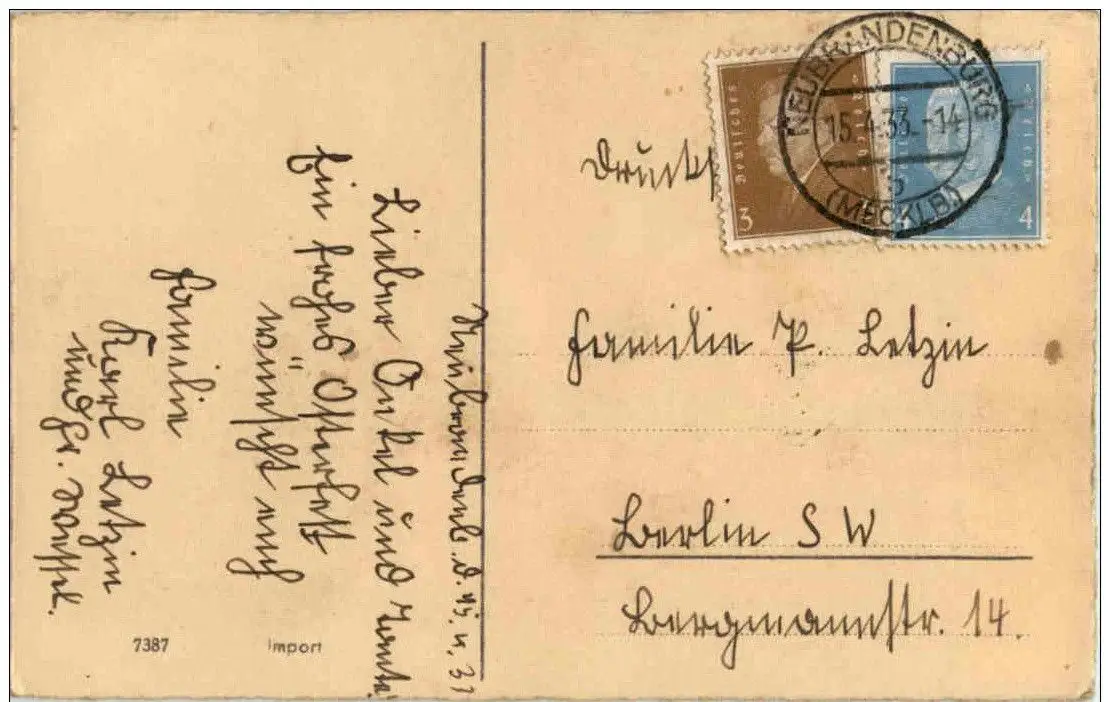 Neubrandenb. d. 15. 4. 33
Lieber Onkel und Tante!
Ein frohes Osterfest
wünscht euch
Familie
Karl Letzin
und Fr.
7387
Import
Drucks
Deutsches Reich
3
Deutsches Reich
4
NEUBRANDENBURG
15.4.33.-14
b
(MECKLB.)
Familie P. Letzin
Berlin S W
Bergmannstr. 14.